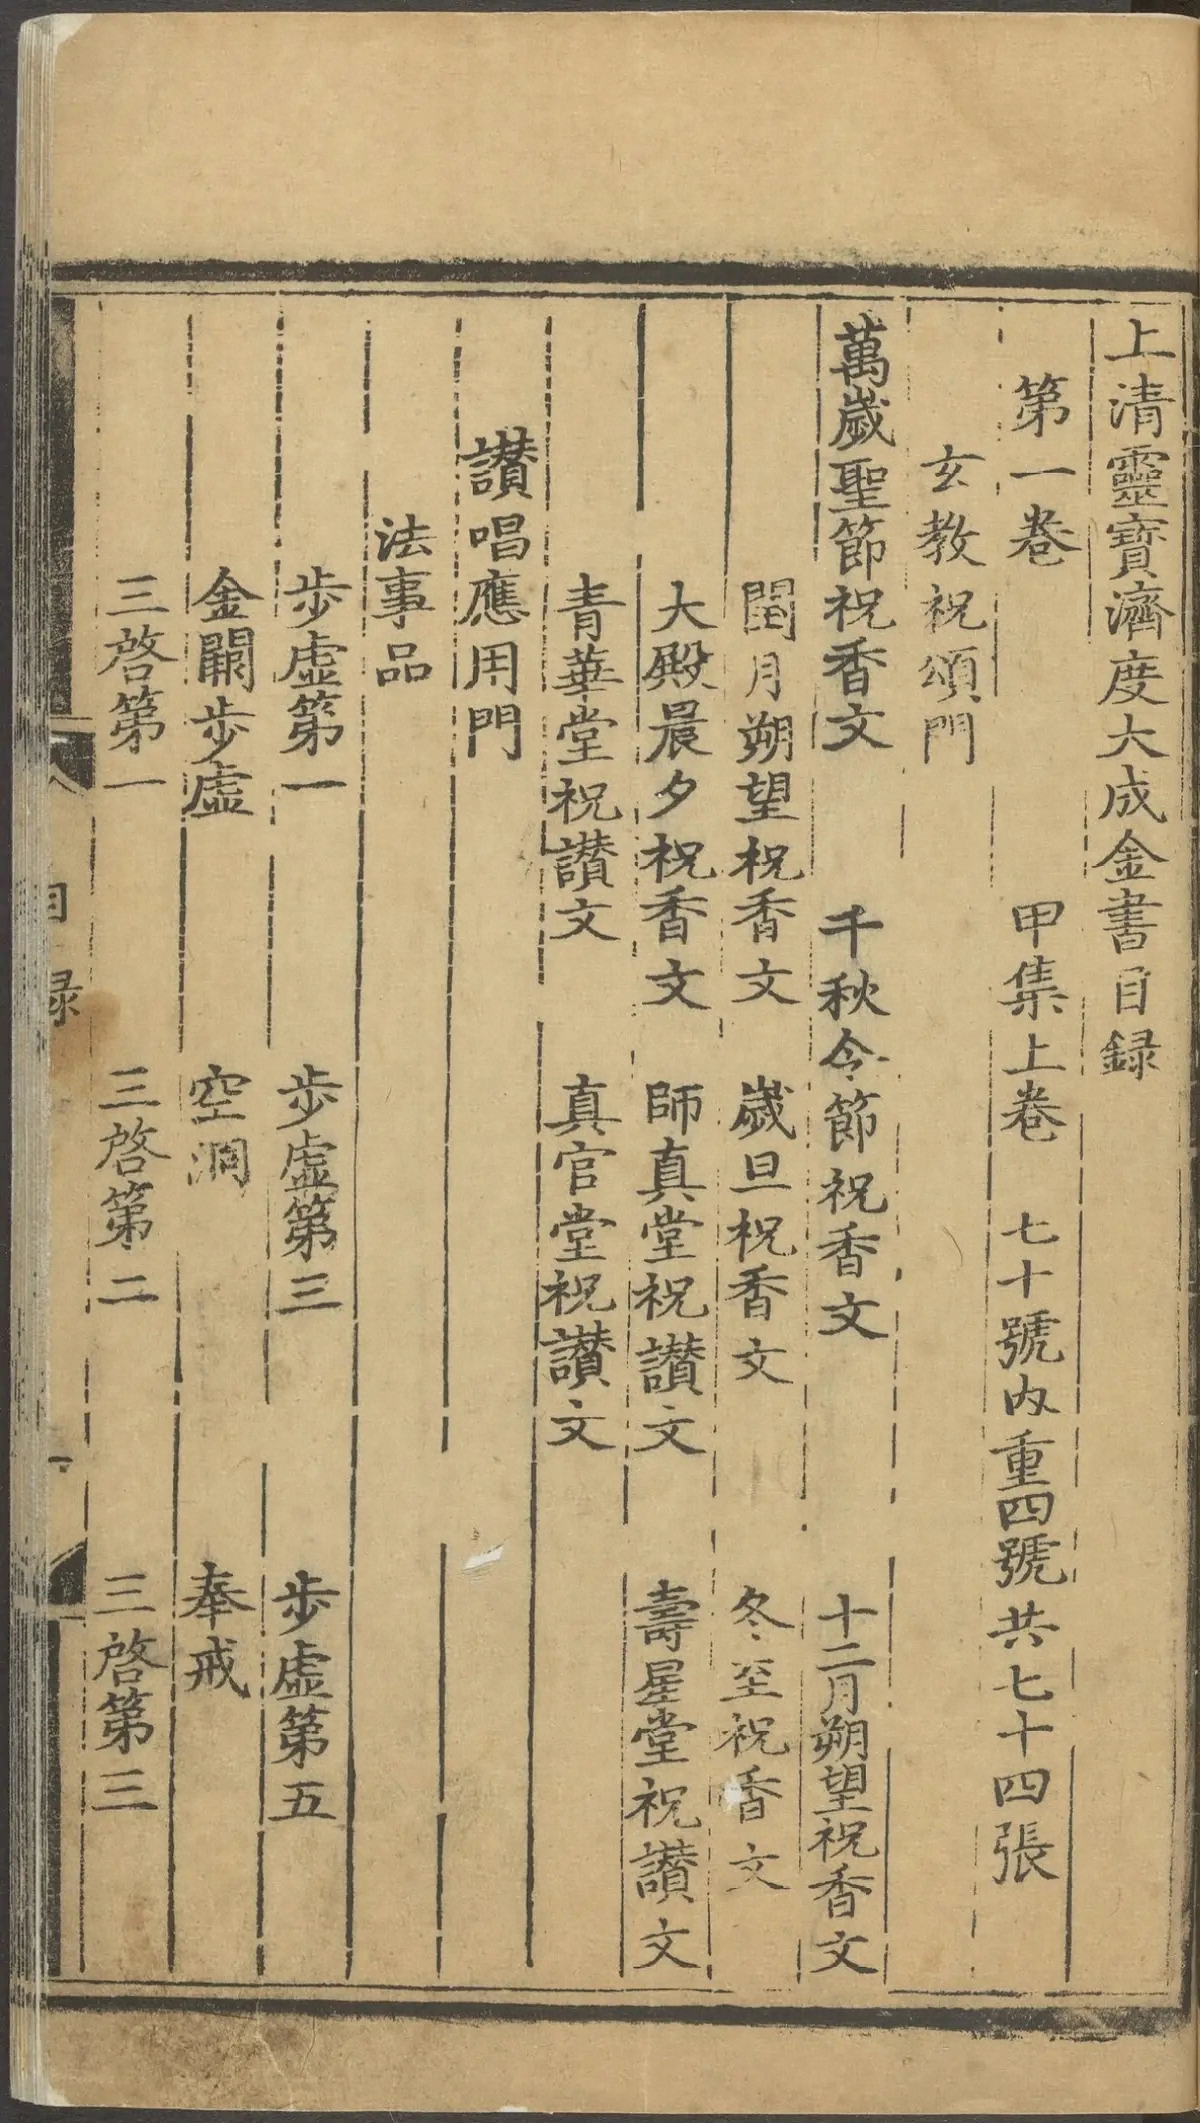 上清靈寶濟度大成金書目録
第一卷 甲集上卷 七十號內重四號共七十四張
玄教祝頌門
萬歲聖節祝香文 千秋令節祝香文 十二月朔望祝香文
閏月朔望祝香文 歲旦祝香文 冬至祝香文
大殿晨夕祝香文 師真堂祝讃文 壽星堂祝讃文
青華堂祝讃文 真官堂祝讃文
讃唱應用門
法事品
步虛第一 步虛第三 步虛第五
金闕步虛 空洞 奉戒
三啓第一 三啓第二 三啓第三
目録